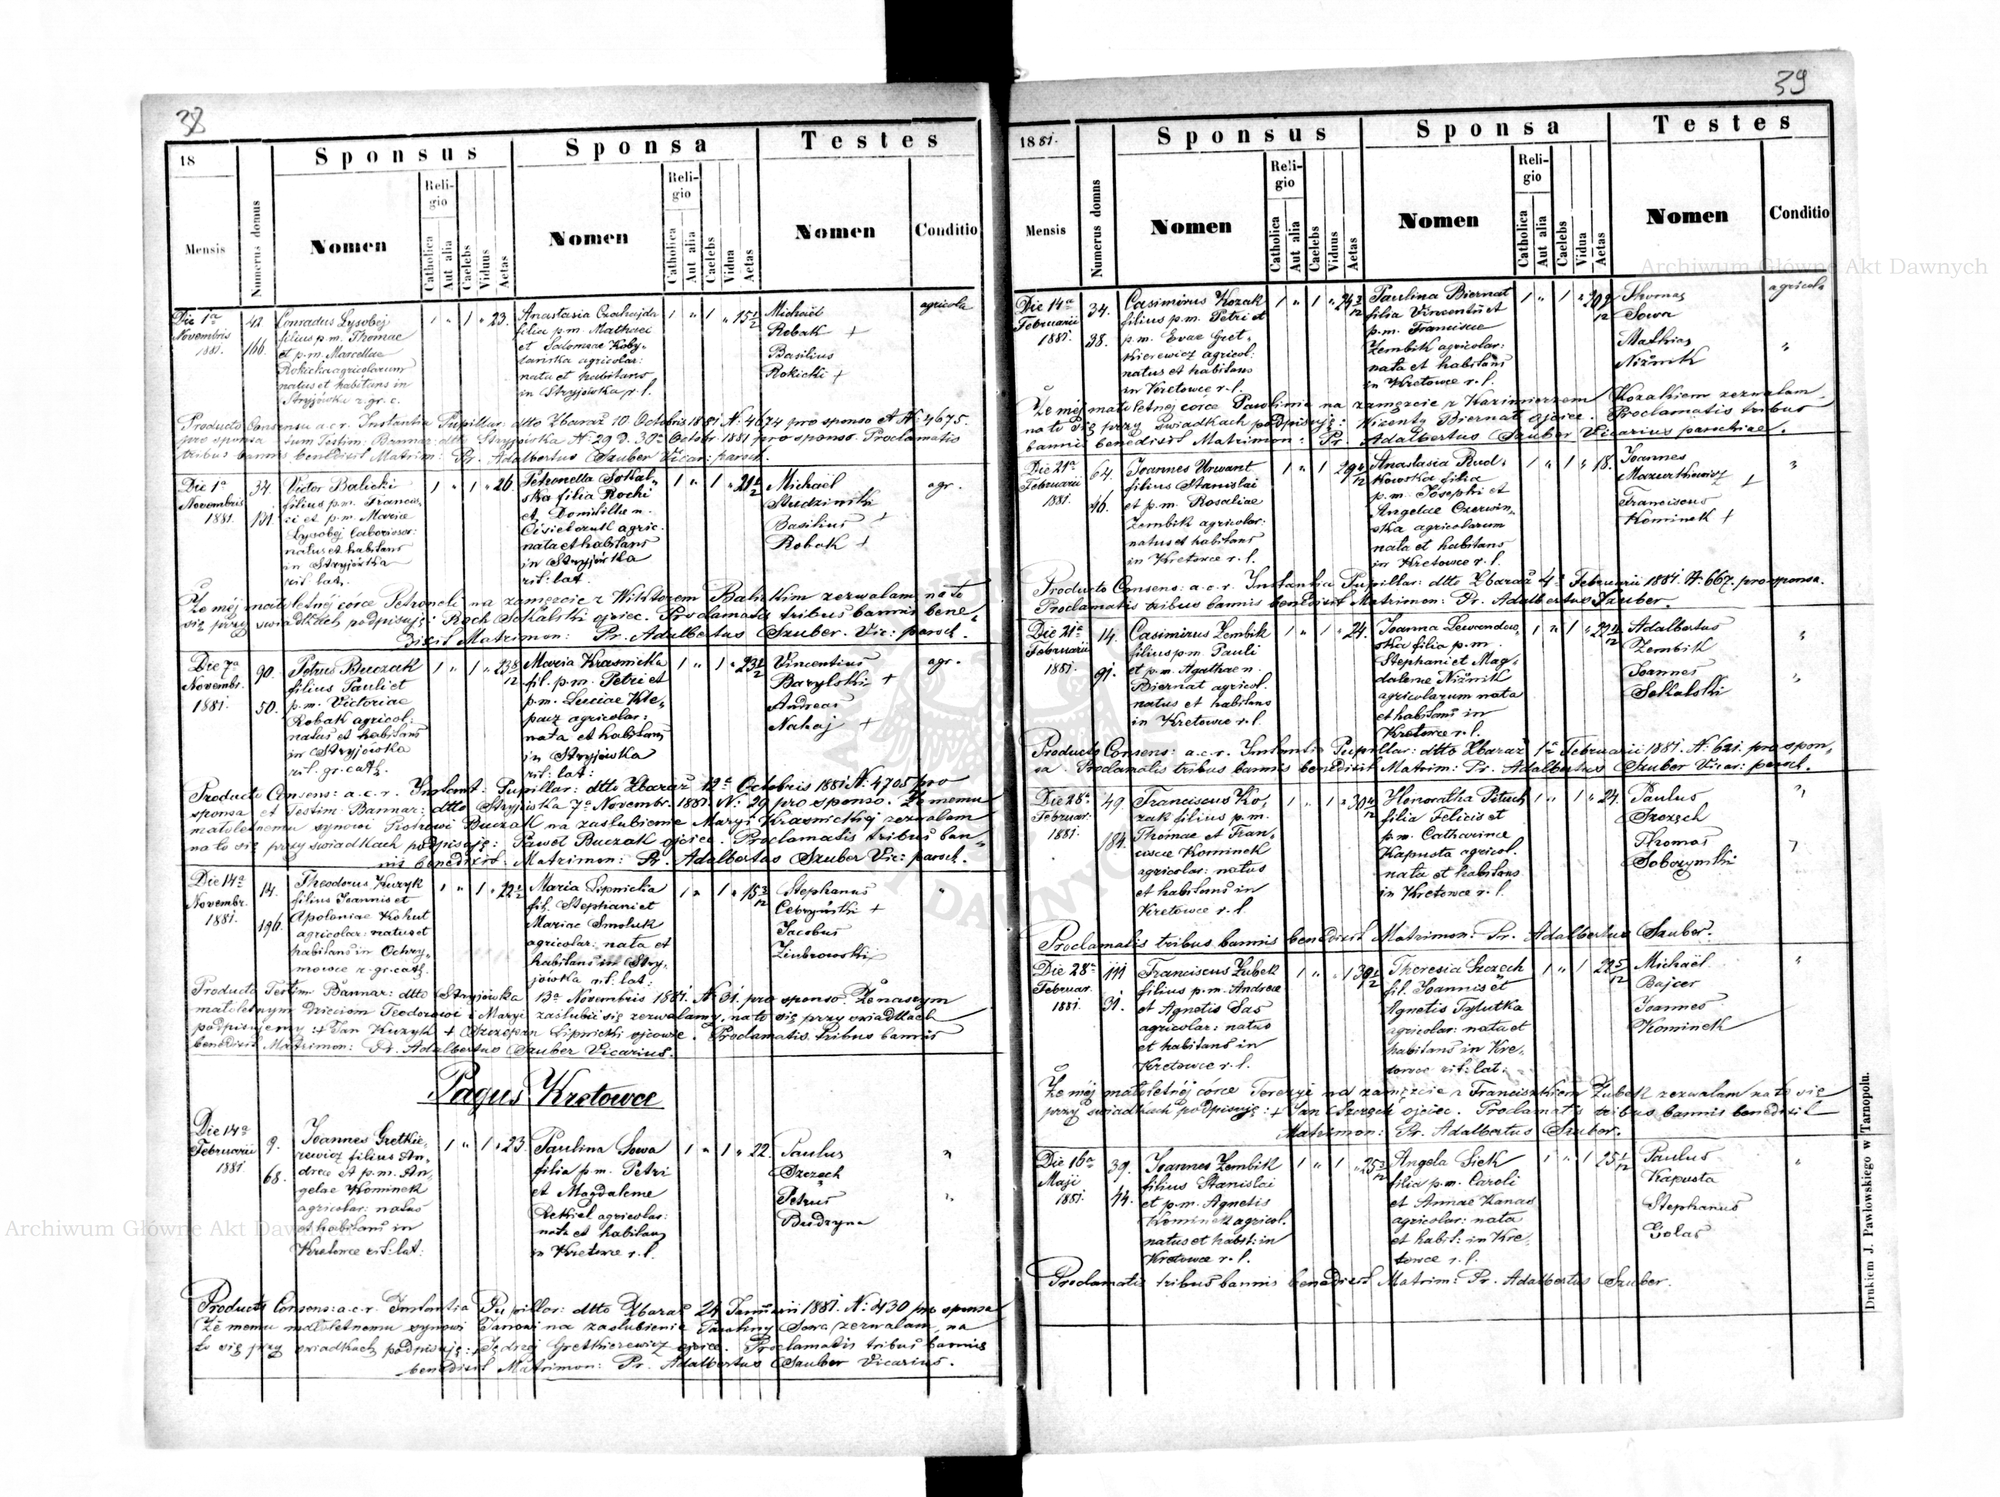 38
18
Sponsus
Sponsa
Testes
Mensis
Numerus domus
Nomen
Religio
Catholica
Aut alia
Caelebs
Viduus
Aetas
Nomen
Religio
Catholica
Aut alia
Caelebs
Vidua
Aetas
Nomen
Conditio
Die 1a
Novembris
1881.
42
166.
Conradus Łysobej
filius p.m. Thomae
et p.m. Marcellae
Rokicka agricolarum
natus et habitans in
Stryjówka r. gr. c.
1 " 1 " 23.
Anastasia
filia p.m. Mathaei
et Salomeae Koby-
lańska agricolar:
nata et habitans
in Stryjówka r. l.
1 " 1 " 15 1/2
Michaël
Robak +
Basilius
Rokicki +
agricola
Producto Consensu a.c.r. Instantia Pupillar: dtto Zbaraż 10 Octobris 1881 N: 4674 pro sponso et N: 4675.
pro sponsa tum Testim: Bannar: dtto Stryjówka N: 29 D. 30a Octobr: 1881 pro sponso. Proclamatis
tribus bannis benedixit Matrim: Pr. Adalbertus Szuber Vicar: paroch.
Die 1a
Novembris
1881.
34.
131.
Victor Balicki
filius p.m. Francis-
ci et p.m. Mariae
Łysobej laborioso:
natus et habitans
in Stryjówka
rit: lat.
1 " 1 " 26.
Petronella Sokal-
ska filia Rochi
et Domicillae n.
agric:
nata et habitans
in Stryjówka
rit: lat.
1 " 1 " 21
Michaël
Studziński
Basilius +
Robak +
agr.
Że mej małoletnéj córce Petroneli na zamęzcie z Wiktorem Balickim zezwalam na to
się przy świadkach podpisuję: Roch Sokalski ojciec. Proclamatis tribus bannis bene-
dixit Matrimon: Pr. Adalbertus Szuber. Vic: paroch.
Die 7a
Novembr.
1881.
90.
50.
Petrus Buczak
filius Pauli et
p.m. Victoriae
Robak agricol:
natus et habitans
in Stryjówka
rit. gr. cath.
1 " 1 " 23 8/12
Maria Krasnicka
fil. p.m. Petri et
p.m. Luciae Kle-
pacz agricolar:
nata et habitans
in Stryjówka
rit: lat:
1 " 1 " 23 1/2
Vincentius
Barylski +
Andreas
Nahaj +
agr.
Producto Consens: a.c.r. Instant: Pupillar: dtto Zbaraż 12a Octobris 1881 N: 4705 pro
sponsa et Testim: Bannar: dtto Stryjówka 7a Novembr. 1881 N: 29 pro sponso. Że memu
małoletnemu synowi Piotrowi Buczak na zaślubienie Maryi Krasnickiej zezwalam
na to się przy świadkach podpisuję: Paweł Buczak ojciec. Proclamatis tribus ban-
nis benedixit Matrimon: Pr. Adalbertus Szuber Vic: paroch.
Die 14a
Novembr.
1881.
14.
196.
Theodorus Kuzyk
filius Joannis et
Apoloniae Kohut
agricolar: natus et
habitans in Ochry-
mowce r. gr. cath.
1 " 1 " 22 1/2
Maria Lipnicka
fil. Stephani et
Mariae Smoluk
agricolar: nata et
habitans in Stry-
jówka rit. lat:
1 " 1 " 15 3/12
Stephanus
Cebryński +
Jacobus
Ziubrowski
"
Producto Testim: Bannar: dtto Stryjówka 13a Novembris 1881. N: 31. pro sponso. Że naszym
małoletnym dzieciom Teodorowi i Maryi zaślubić się zezwalamy, na to się przy świadkach
podpisujemy: + Jan Kuzyk + Szczepan Lipnicki ojcowie. Proclamatis tribus bannis
benedixit Matrimon: Pr. Adalbertus Szuber Vicarius.
Pagus Kretowce
Die 14a
Februarii
1881
9.
68.
Joannes Gretkie-
rewicz filius An-
dreae et p.m. An-
gelae Kominek
agricolar: natus
et habitans in
Kretowce rit: lat:
1 " 1 " 23
Paulina Sowa
filia p.m. Petri
et Magdalenae
agricolar:
nata et habitans
in Kretowce r. l.
1 " 1 " 22.
Paulus
Szczęch
Petrus
Budzyna
"
"
Producto Consens: a.c.r. Instantia Pupillar: dtto Zbaraż 24 Januarii 1881. N: 430 pro sponsa
Że memu małoletnemu synowi Janowi na zaślubienie Pauliny Sowa zezwalam, na
to się przy świadkach podpisuję: Jędrzej Gretkierewicz ojciec. Proclamatis tribus bannis
benedixit Matrimon: Pr. Adalbertus Szuber Vicarius.
39
1881.
Sponsus
Sponsa
Testes
Mensis
Numerus domus
Nomen
Religio
Catholica
Aut alia
Caelebs
Viduus
Aetas
Nomen
Religio
Catholica
Aut alia
Caelebs
Vidua
Aetas
Nomen
Conditio
Die 14a
Februarii
1881.
34.
38.
Casimirus Kozak
filius p.m. Petri et
p.m. Evae Gret-
kierewicz agricol:
natus et habitans
in Kretowce r. l.
1 " 1 " 24 2/12
Paulina Biernat
filia Vincentii et
p.m. Franciscae
Zembik agricolar:
nata et habitans
in Kretowce r. l.
1 " 1 " 20 9/12
Thomas
Sowa
Mathias
Niżnik
agricola
"
Że mej małoletnéj córce Paulinie na zamęzcie z Kazimierzem Kozakiem zezwalam,
na to się przy świadkach podpisuję: Wicenty Biernat ojciec. Proclamatis tribus
bannis benedixit Matrimon: Pr. Adalbertus Szuber Vicarius parochiae.
Die 21a
Februarii
1881.
64.
46.
Joannes Urwant
filius Stanislai
et p.m. Rosaliae
Zembik agricolar:
natus et habitans
in Kretowce r. l.
1 " 1 29 4/12
Anastasia Rud-
kowska filia
p.m. Josephi et
Angelae Czerwin-
ska agricolarum
nata et habitans
in Kretowce r. l.
1 " 1 " 18.
Joannes
Mazurkiewicz +
Franciscus
Kominek +
"
Producto Consens: a.c.r. Instantia Pupillar: dtto Zbaraż 4a Februarii 1881. N: 667. pro sponsa.
Proclamatis tribus bannis benedixit Matrimon: Pr. Adalbertus Szuber.
Die 21a
Februarii
1881.
14.
91.
Casimirus Zembik
filius p.m. Pauli
et p.m. Agathae n.
Biernat agricol.
natus et habitans
in Kretowce r. l.
1 " 1 " 24.
Joanna Lewandow-
ska filia p.m.
Stephani et Mag-
dalenae Niżnik
agricolarum nata
et habitans in
Kretowce r. l.
1 " 1 " 22
Adalbertus
Zembik
Joannes
Sokalski
"
"
Producto Consens: a.c.r. Instantia Pupillar: dtto Zbaraż 1a Februarii 1881. N: 621. pro spon-
sa. Proclamatis tribus bannis benedixit Matrim: Pr. Adalbertus Szuber Vicar: paroch.
Die 28a
Februar.
1881.
49.
184.
Franciscus Ko-
zak filius p.m.
Thomae et Fran-
ciscae Kominek
agricolar: natus
et habitans in
Kretowce r. l.
1 " 1 " 30
Honoratha Pituch
filia Felicis et
p.m. Catharinae
Kapusta agricol.
nata et habitans
in Kretowce r. l.
1 " 1 " 24.
Paulus
Szczęch
Thomas
Sobczyński
"
"
Proclamatis tribus bannis benedixit Matrimon: Pr. Adalbertus Szuber.
Die 28a
Februar.
1881.
111
31.
Franciscus Zubek
filius p.m. Andreae
et Agnetis Sas
agricolar: natus
et habitans in
Kretowce r. l.
1 " 1 39 1/12
Theresia Szczęch
fil. Joannis et
Agnetis Tylutka
agricolar: nata et
habitans in Kre-
towce rit: lat:
1 " 1 22 5/12
Michaël
Bajcer
Joannes
Kominek
"
Że méj małoletnéj córce Tereżyi na zamęzcie z Franciszkiem Zubek zezwalam na to się
przy świadkach podpisuję: + Jan Szczęch ojciec. Proclamatis tribus bannis benedixit
Matrimon: Pr. Adalbertus Szuber.
Die 16a
Maji
1881.
39.
44.
Joannes Zembik
filius Stanislai
et p.m. Agnetis
Kominek agricol.
natus et habit: in
Kretowce r. l.
1 " 1 " 25 3/12
Angela Siek
filia p.m. Caroli
et Annae Kanas
agricolar: nata
et habit: in Kre-
towce r. l.
1 " 1 25 1/12
Paulus
Kapusta
Stephanus
Golas
"
Proclamatis tribus bannis benedixit Matrim: Pr. Adalbertus Szuber.
Drukiem J. Pawłowskiego w Tarnopolu.
Archiwum Główne Akt Dawnych
Archiwum Główne Akt Dawnych